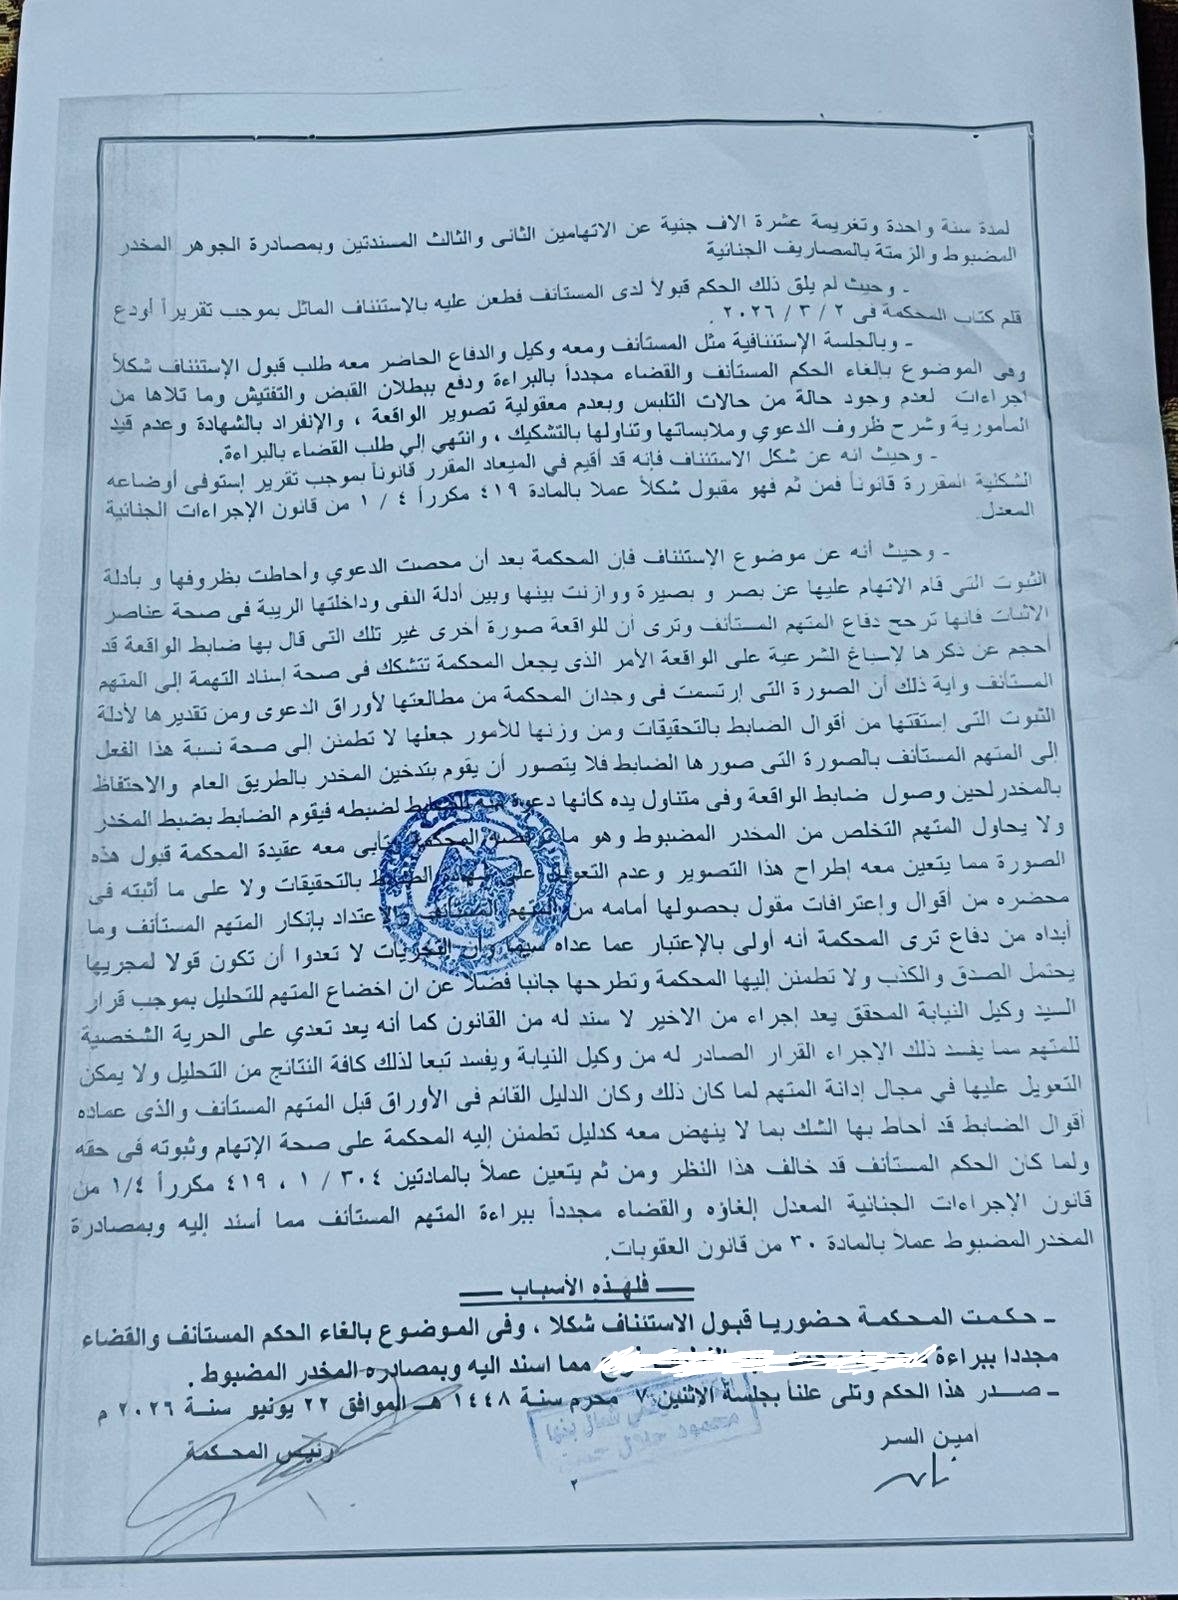 لمدة سنة واحدة وتغريمة عشرة الاف جنية عن الاتهامين الثانى والثالث المسندتين وبمصادرة الجوهر المخدر
المضبوط والزمتة بالمصاريف الجنائية
- وحيث لم يلق ذلك الحكم قبولاً لدى المستأنف فطعن عليه بالإستئناف الماثل بموجب تقريراً أودع
قلم كتاب المحكمة فى ٢ / ٣ / ٢٠٢٦ .
- وبالجلسة الإستئنافية مثل المستأنف ومعه وكيل والدفاع الحاضر معه طلب قبول الإستئناف شكلاً
وفى الموضوع بإلغاء الحكم المستأنف والقضاء مجدداً بالبراءة ودفع ببطلان القبض والتفتيش وما تلاها من
اجراءات لعدم وجود حالة من حالات التلبس وبعدم معقولية تصوير الواقعة ، والإنفراد بالشهادة وعدم قيد
المأمورية وشرح ظروف الدعوي وملابساتها وتناولها بالتشكيك ، وانتهي إلي طلب القضاء بالبراءة.
- وحيث انه عن شكل الاستئناف فإنه قد أقيم في الميعاد المقرر قانوناً بموجب تقرير إستوفى أوضاعه
الشكلية المقررة قانوناً فمن ثم فهو مقبول شكلاً عملا بالمادة ٤١٩ مكرراً ٤ / ١ من قانون الإجراءات الجنائية
المعدل.
- وحيث أنه عن موضوع الاستئناف فإن المحكمة بعد أن محصت الدعوي وأحاطت بظروفها و بأدلة
الثبوت التي قام الاتهام عليها عن بصر و بصيرة ووازنت بينها وبين أدلة النفى وداخلتها الريبة فى صحة عناصر
الإثبات فانها ترجح دفاع المتهم المستأنف وترى أن للواقعة صورة أخرى غير تلك التى قال بها ضابط الواقعة قد
أحجم عن ذكرها لإسباغ الشرعية على الواقعة الأمر الذى يجعل المحكمة تتشكك فى صحة إسناد التهمة إلى المتهم
المستأنف واية ذلك أن الصورة التى إرتسمت فى وجدان المحكمة من مطالعتها لأوراق الدعوى ومن تقديرها لأدلة
الثبوت التى إستقتها من أقوال الضابط بالتحقيقات ومن وزنها للأمور جعلها لا تطمئن إلى صحة نسبة هذا الفعل
إلى المتهم المستأنف بالصورة التى صورها الضابط فلا يتصور أن يقوم بتدخين المخدر بالطريق العام والاحتفاظ
بالمخدرلحين وصول ضابط الواقعة وفى متناول يده كأنها دعوة منه للضابط لضبطه فيقوم الضابط بضبط المخدر
ولا يحاول المتهم التخلص من المخدر المضبوط وهو ما المحكمة وتأبى معه عقيدة المحكمة قبول هذه
الصورة مما يتعين معه إطراح هذا التصوير وعدم التعويل على شهادة الضابط بالتحقيقات ولا على ما أثبته فى
محضره من أقوال وإعترافات مقول بحصولها أمامه من المتهم المستأنف والاعتداد بإنكار المتهم المستأنف وما
أبداه من دفاع ترى المحكمة أنه أولى بالإعتبار عما عداه سيما وأن التحريات لا تعدوا أن تكون قولا لمجريها
يحتمل الصدق والكذب ولا تطمئن إليها المحكمة وتطرحها جانبا فضلاً عن ان اخضاع المتهم للتحليل بموجب قرار
السيد وكيل النيابة المحقق يعد إجراء من الاخير لا سند له من القانون كما أنه يعد تعدي على الحرية الشخصية
للمتهم مما يفسد ذلك الإجراء القرار الصادر له من وكيل النيابة ويفسد تبعا لذلك كافة النتائج من التحليل ولا يمكن
التعويل عليها في مجال إدانة المتهم لما كان ذلك وكان الدليل القائم فى الأوراق قبل المتهم المستأنف والذى عماده
أقوال الضابط قد أحاط بها الشك بما لا ينهض معه كدليل تطمئن إليه المحكمة على صحة الإتهام وثبوته فى حقه
ولما كان الحكم المستأنف قد خالف هذا النظر ومن ثم يتعين عملاً بالمادتين ٣٠٤ / ١ ، ٤١٩ مكرراً ١/٤ من
قانون الإجراءات الجنائية المعدل إلغاؤه والقضاء مجدداً ببراءة المتهم المستأنف مما أسند إليه وبمصادرة
المخدر المضبوط عملاً بالمادة ٣٠ من قانون العقوبات.
ـــ فلهذه الأسباب ـــ
ـ حكمت المحكمة حضوريا قبول الاستئناف شكلا ، وفى الموضوع بالغاء الحكم المستأنف والقضاء
مجددا ببراءة مما اسند اليه وبمصادره المخدر المضبوط .
ـ صدر هذا الحكم وتلى علناً بجلسة الاثنين ٧ محرم سنة ١٤٤٨ هـ الموافق ٢٢ يونيو سنة ٢٠٢٦ م
امين السر
رئيس المحكمة
شمال بنها
محمود
٢